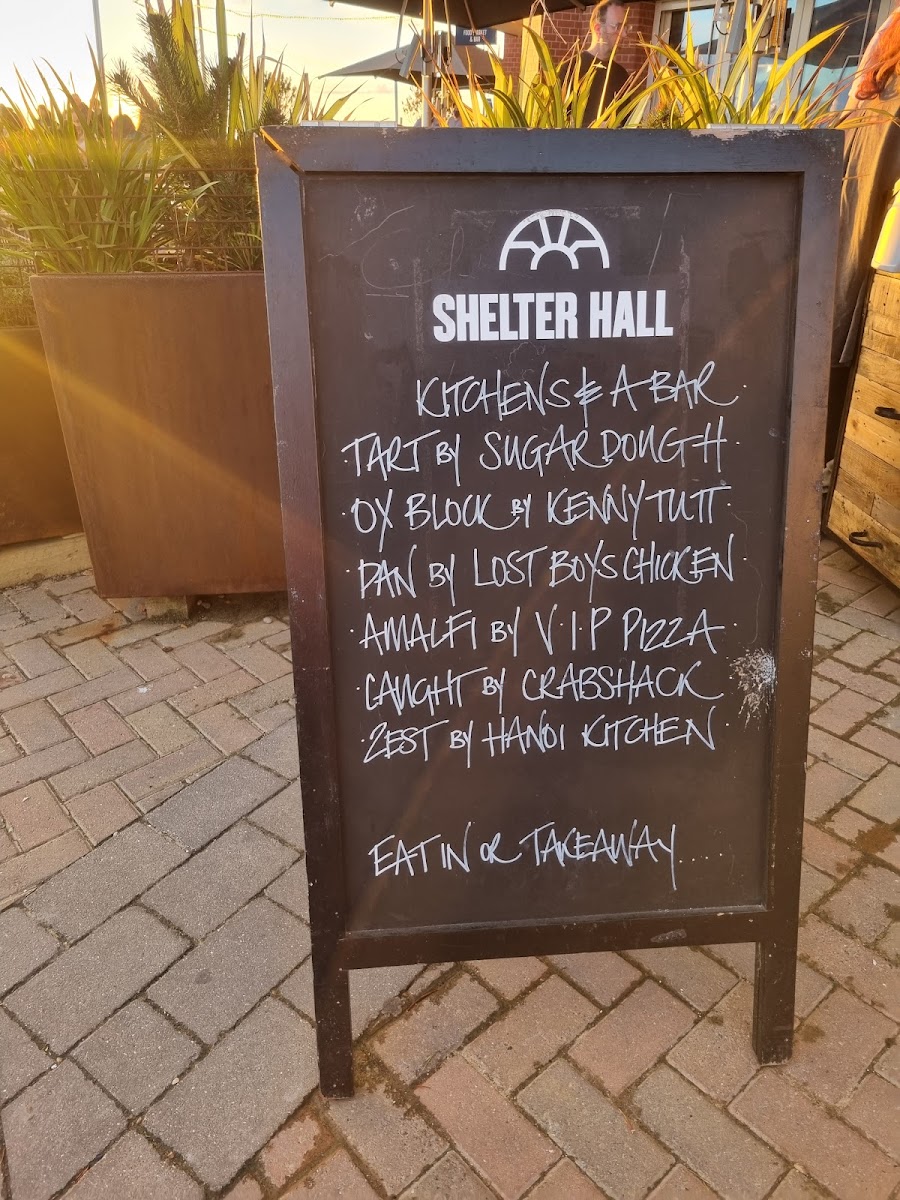 SHELTER HALL
KITCHENS & A BAR.
·TART BY SUGARDOUGH·
·OX BLOCK BY KENNY TUTT·
·PAN BY LOST BOYS CHICKEN·
·AMALFI BY V·I·P PIZZA·
·CAUGHT BY CRABSHACK·
·ZEST BY HANOI KITCHEN·
EAT IN OR TAKEAWAY....